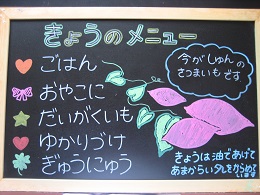 きょうのメニュー
ごはん
おやこに
だいがくいも
ゆかりづけ
ぎゅうにゅう
今がしゅんの
さつまいもです
きょうは油であげて
あまからいタレをからめて
います